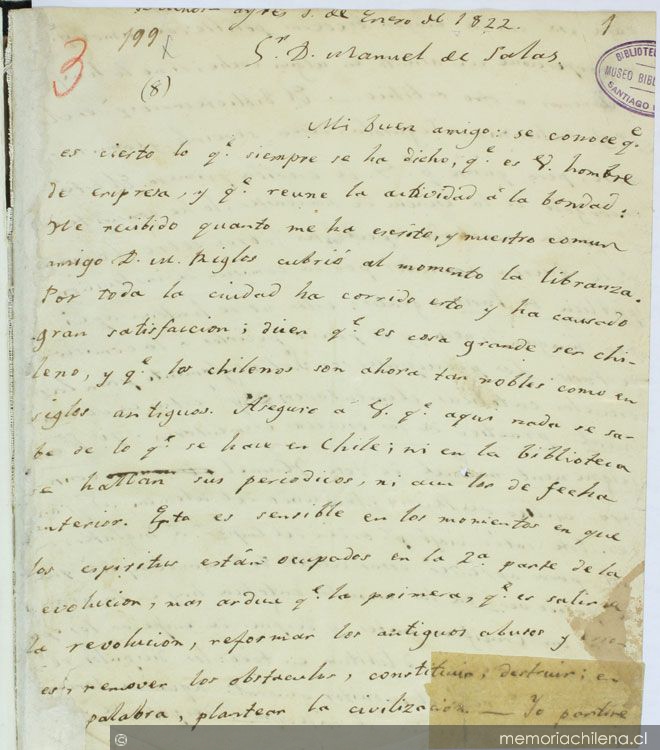 Buenos ayres 1. de Enero de 1822.
1
3
199
(8)
Sr. D. Manuel de Salas
BIBLIOTE
MUSEO BIB
SANTIAGO
Mi buen amigo: se conoce qe.
es cierto lo qe. siempre se ha dicho, qe. es V. hombre
de empresa, y qe. reune la actividad á la bondad.
He recibido quanto me ha escrito, y nuestro comun
amigo D. M. Riglos cubrió al momento la libranza.
Por toda la ciudad ha corrido esto y ha causado
gran satisfaccion; dicen qe. es cosa grande ser chi-
leno, y qe. los chilenos son ahora tan nobles como en
siglos antiguos. Aseguro á V. qe. aqui nada se sa-
be de lo qe. se hace en Chile; ni en la biblioteca
se hallan sus periodicos, ni aun los de fecha
anterior. Esto es sensible en los momentos en que
los espiritus están ocupados en la 2a. parte de la
evolucion, mas ardua qe. la primera, qe. es salir de
la revolucion, reformar los antiguos abusos y
es, remover los obstaculos, constituir, destruir; en
palabra, plantear la civilización. — Yo partiré
© memoriachilena.cl